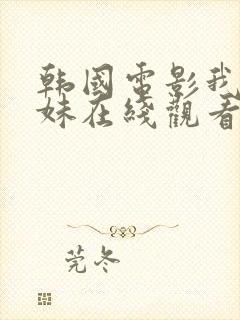 韩國電影我
妹在綫觀看
莞冬